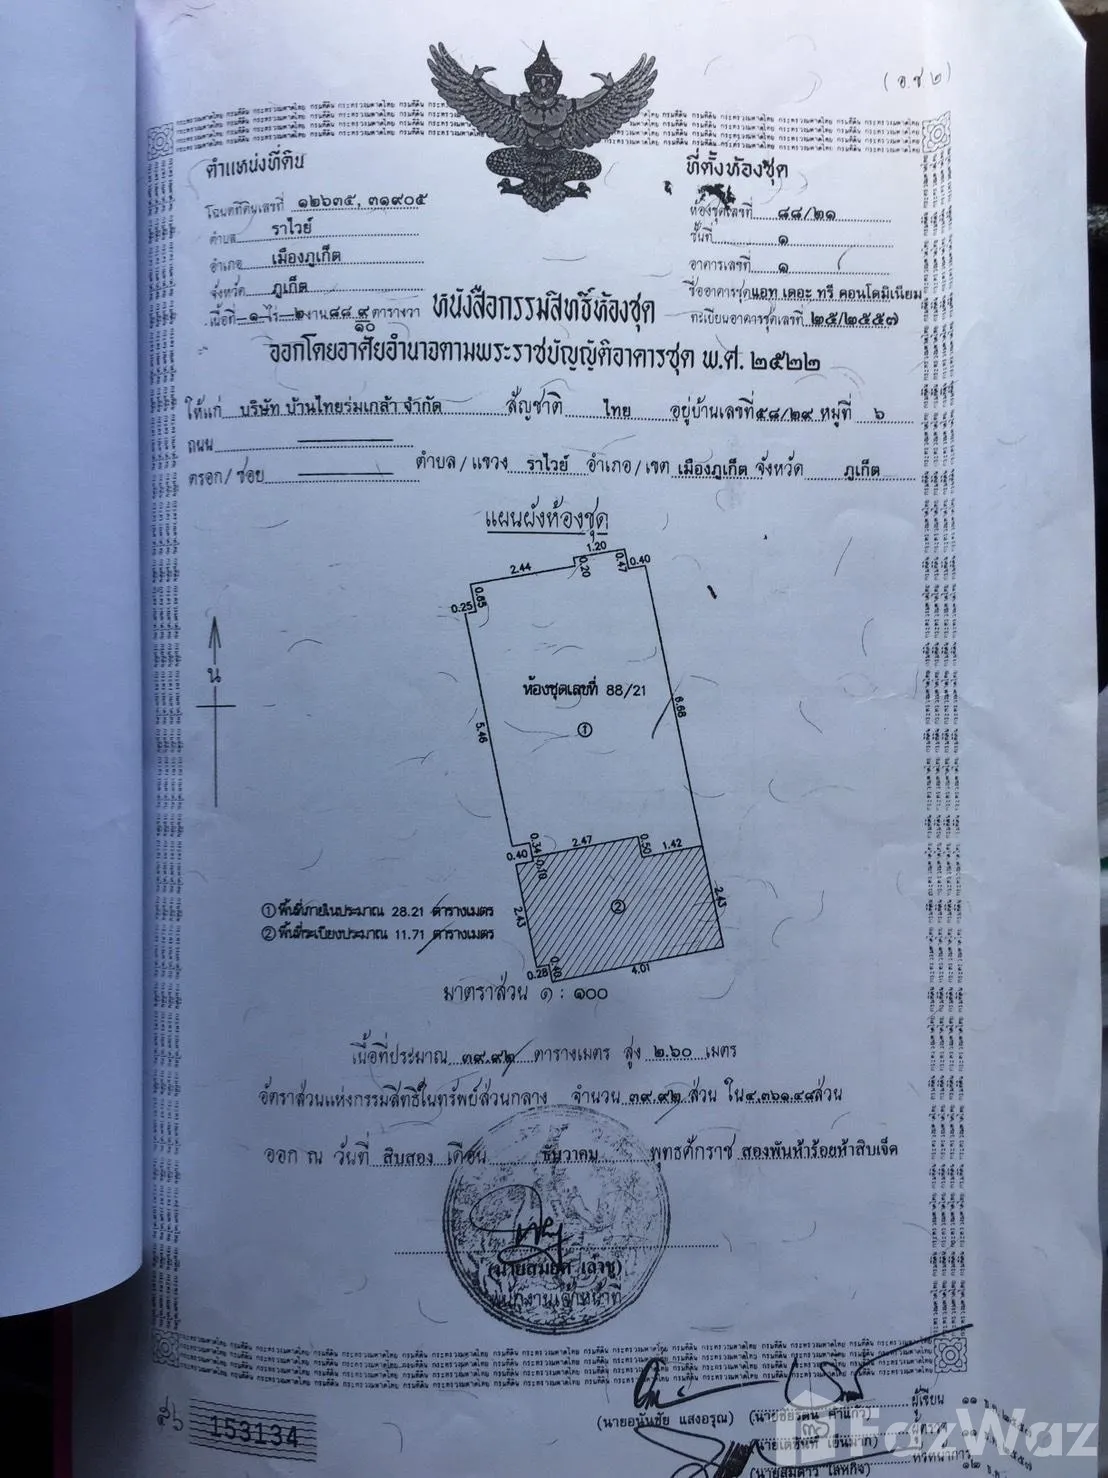 (อ.ช ๒)
ตำแหน่งที่ดิน
โฉนดที่ดินเลขที่ ๑๒๖๓๕, ๓๑๙๐๕
ตำบล ราไวย์
อำเภอ เมืองภูเก็ต
จังหวัด ภูเก็ต
เนื้อที่ ๑ ไร่ ๒ งาน ๘๘ ๙/๑๐ ตารางวา
ที่ตั้งห้องชุด
ห้องชุดเลขที่ ๘๘/๒๑
ชั้นที่ ๑
อาคารเลขที่ ๑
ชื่ออาคารชุด แอท เดอะ ทรี คอนโดมิเนียม
ทะเบียนอาคารชุดเลขที่ ๒๕/๒๕๕๗
หนังสือกรรมสิทธิ์ห้องชุด
ออกโดยอาศัยอำนาจตามพระราชบัญญัติอาคารชุด พ.ศ. ๒๕๒๒
ให้แก่ บริษัท บ้านไทยร่มเกล้า จำกัด สัญชาติ ไทย อยู่บ้านเลขที่ ๕๘/๒๙ หมู่ที่ ๖
ถนน
ตรอก/ซอย ตำบล/แขวง ราไวย์ อำเภอ/เขต เมืองภูเก็ต จังหวัด ภูเก็ต
แผนผังห้องชุด
1.20
2.44 0.20 0.47 0.40
0.25 0.65
น
ห้องชุดเลขที่ 88/21
①
5.46 6.68
0.40 0.34 0.10 2.47 0.50 1.42
②
2.43 2.43
0.28 0.40 4.01
① พื้นที่ภายในประมาณ 28.21 ตารางเมตร
② พื้นที่ระเบียงประมาณ 11.71 ตารางเมตร
มาตราส่วน ๑ : ๑๐๐
เนื้อที่ประมาณ ๓๙.๙๒ ตารางเมตร สูง ๒.๖๐ เมตร
อัตราส่วนแห่งกรรมสิทธิ์ในทรัพย์ส่วนกลาง จำนวน ๓๙.๙๒ ส่วน ใน ๔,๓๖๑.๔๘ ส่วน
ออก ณ วันที่ สิบสอง เดือน ธันวาคม พุทธศักราช สองพันห้าร้อยห้าสิบเจ็ด
พนักงานเจ้าหน้าที่
153134
(นายอนันชัย แสงอรุณ) ผู้เขียน
FazWaz